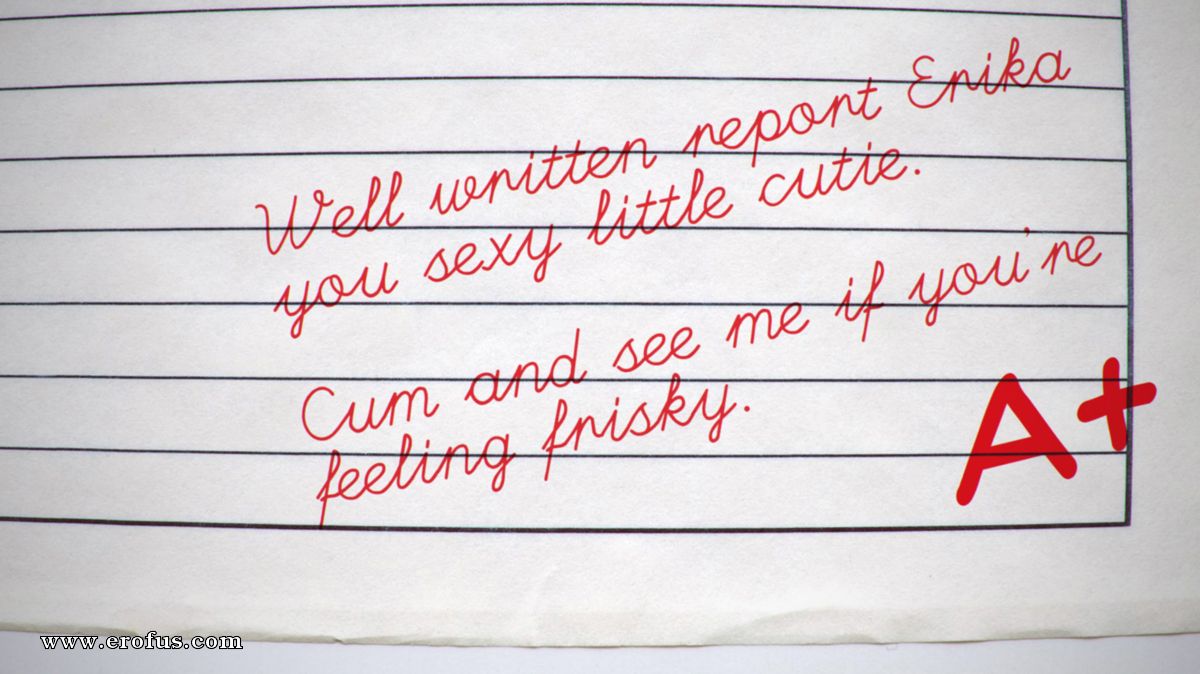 Well written report Erika
you sexy little cutie.
Cum and see me if you're
feeling frisky.
A+
www.erofus.com